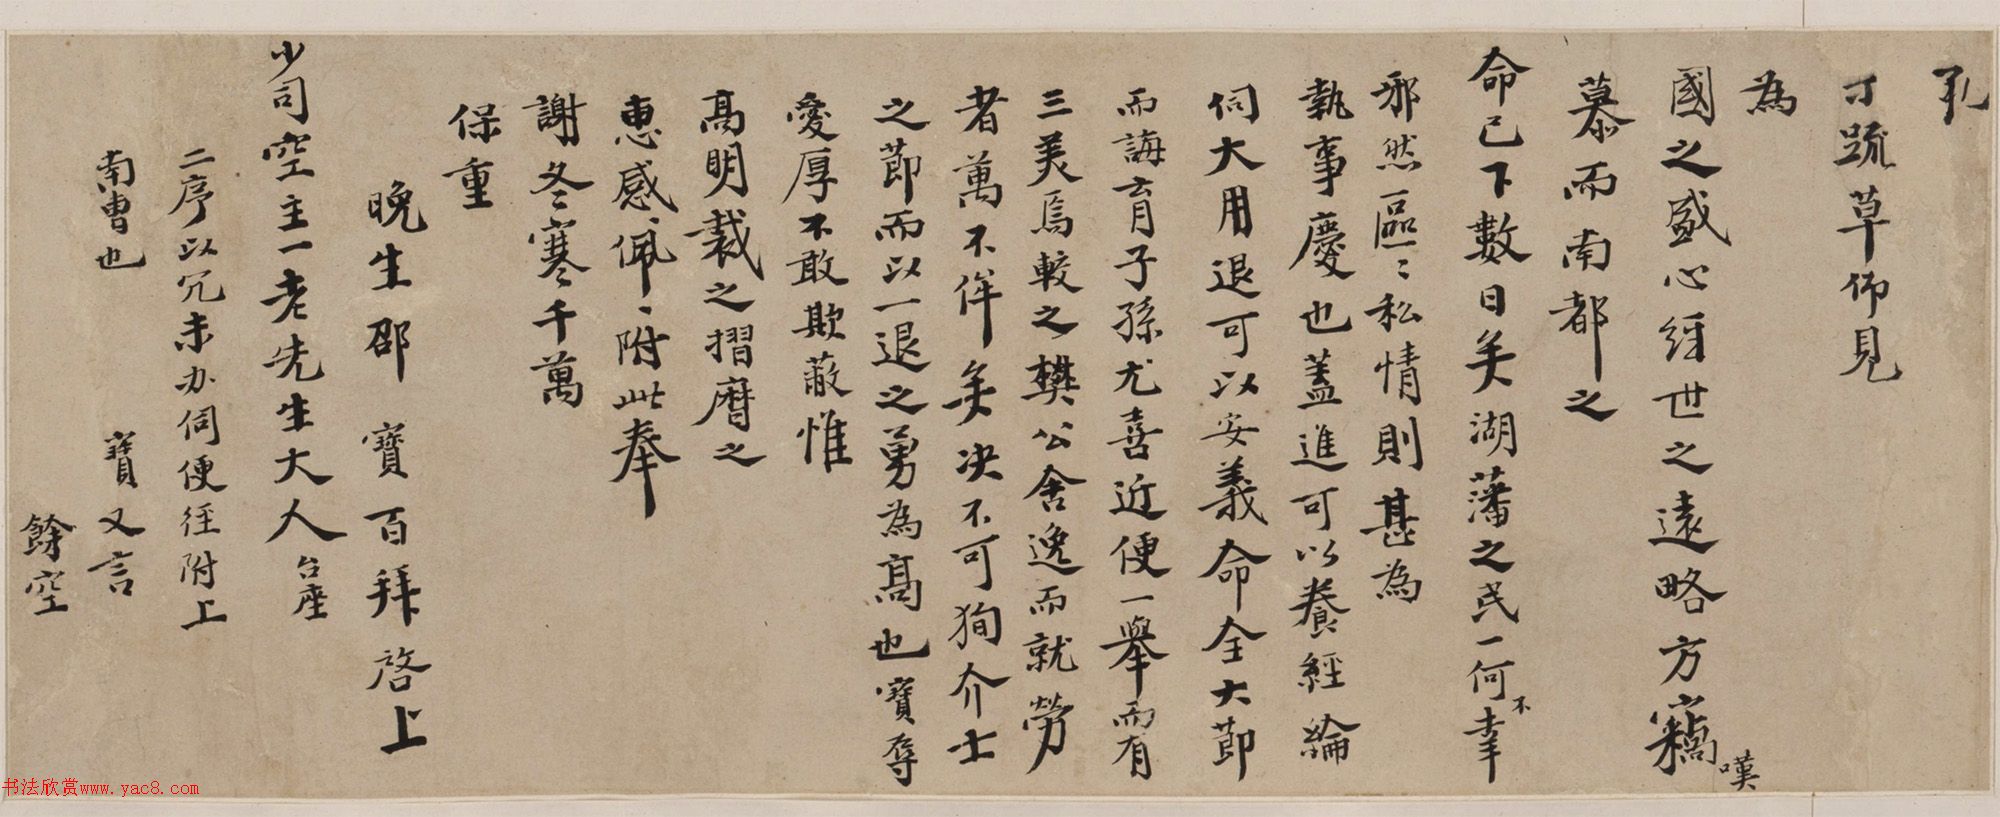 寸疏草仰見
為
國之盛心經世之遠略方竊嘆
慕而南都之
命已下數日矣湖藩之民一何不幸
邪然區〻私情則甚為
執事慶也蓋進可以養經綸
伺大用退可以安義命全大節
而誨育子孫尤喜近便一舉而有
三美焉較之樊公舍逸而就勞
者萬不侔矣決不可狥介士
之節而以一退之勇為高也寶辱
愛厚不敢欺蔽惟
高明裁之摺磨之
惠感〻佩〻附此奉
謝冬寒千萬
保重
晚生邵寶百拜啓上
少司空主一老先生大人台座
二序以冗未办伺便徑附上
南曹也 寶又言
餘空
书法欣赏www.yac8.com